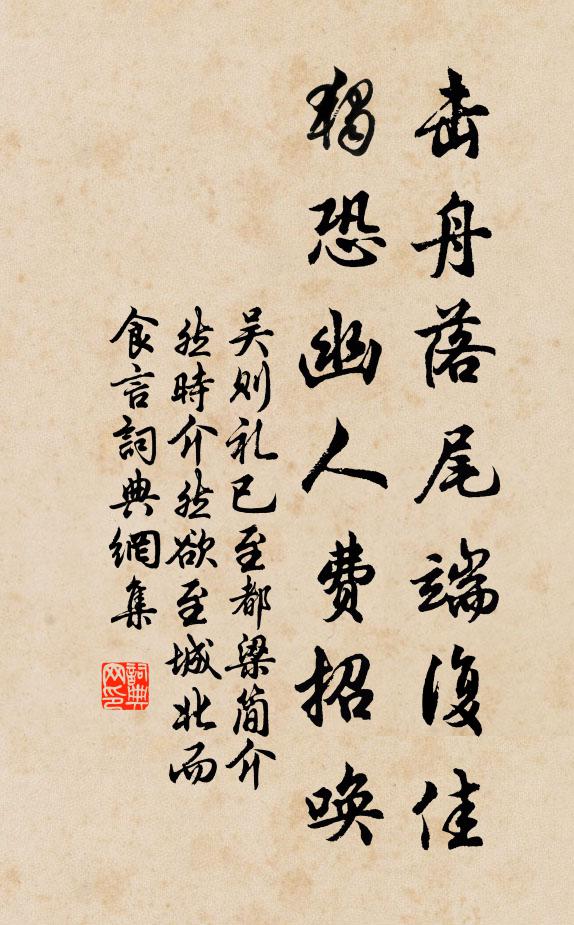 击舟落尾端復佳
独恐幽人費招喚
吴则礼已至都梁简介
然時介然欲至城北而
食言詞典網集
詞典
网印